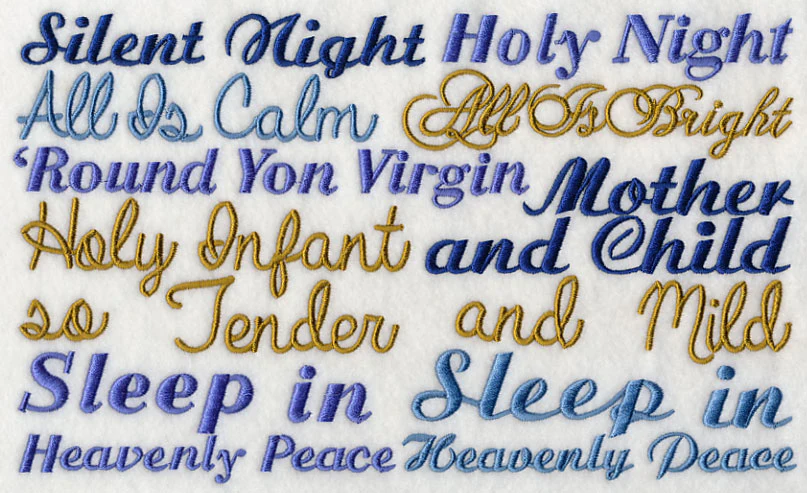 Silent Night Holy Night
All Is Calm All Is Bright
‘Round Yon Virgin Mother
Holy Infant and Child
so Tender and Mild
Sleep in Sleep in
Heavenly Peace Heavenly Peace